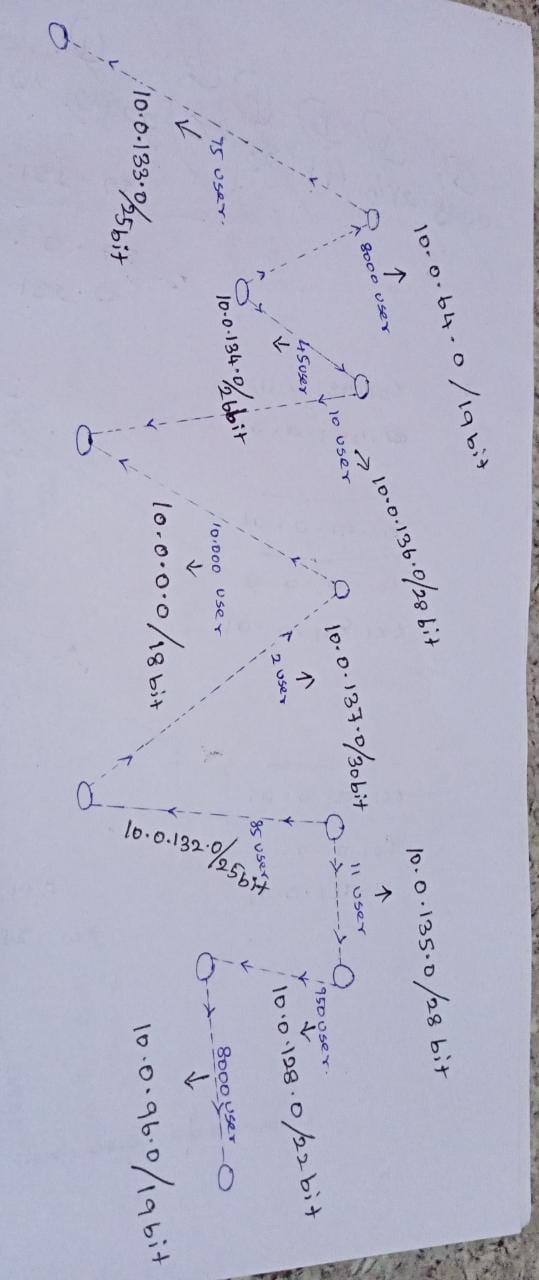 10.0.64.0/19bit
8000 user
75 user.
10.0.133.0/25bit
45user
10.0.134.0/26bit
10 user
10.0.136.0/28bit
10.000 user
10.0.0.0/18bit
10.0.137.0/30bit
2 user
85 user
10.0.132.0/25bit
11 user
10.0.135.0/28 bit
1950 user.
10.0.128.0/22bit
8000 user
10.0.96.0/19bit